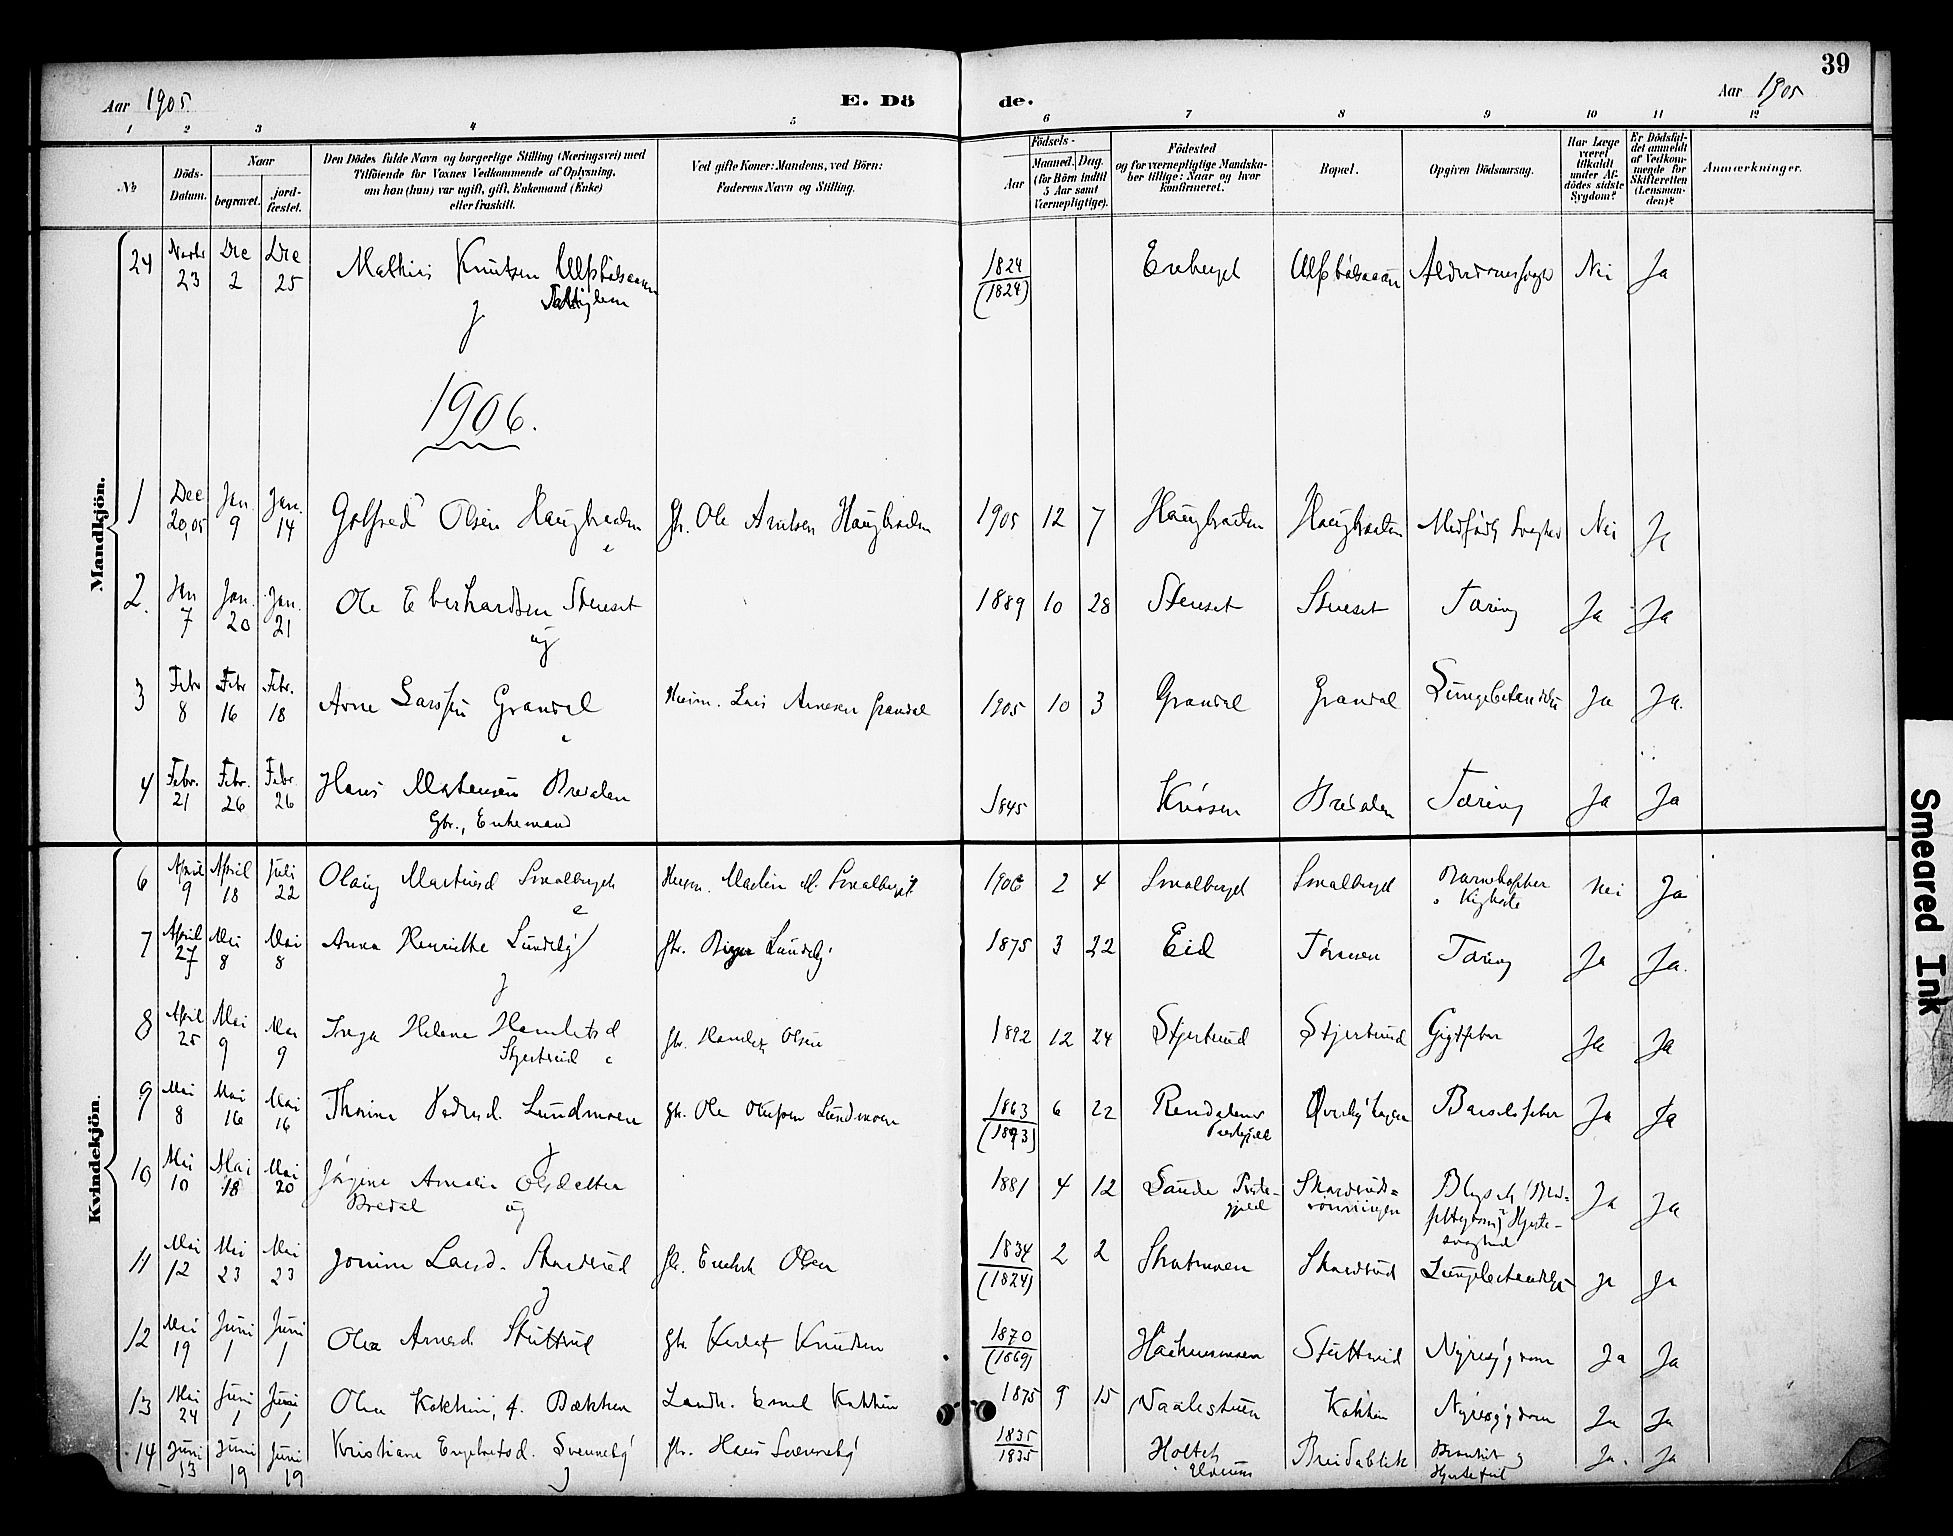 39
Aar 1905. E. Dö de. Aar 1905
1 2 3 4 5 6 7 8 9 10 11 12
No
Döds-Datum.
Naar
begravet.
jord-fæstet.
Den Dödes fulde Navn og borgerlige Stilling (Næringsvei) med
Tilföiende for Voxnes Vedkommende af Oplysning,
om han (hun) var ugift, gift, Enkemand (Enke)
eller fraskilt.
Ved gifte Koner: Mandens, ved Börn:
Faderens Navn og Stilling.
Födsels-
Aar
Maaned. Dag.
(for Börn indtil
5 Aar samt
Værnepligtige).
Födested
og for værnepligtige Mandska-
ber tillige: Naar og hvor
konfirmeret.
Bopæl.
Opgiven Dödsaarsag.
Har Læge
været
tilkaldt
under Af-
dödes sidste
Sygdom?
Er Dödsfal-
det anmeldt
af Vedkom-
mende for
Skifteretten
(Lensman-
den)?
Anmærkninger.
Mandkjön.
24 Novbr 23 Dec 2 Dec 25 Mathis Knutsen 1824 Eneberget Nei Ja
g (1824)
1906.
1 Dec 20,05 Jan. 9 Jan. 14 Golfred Olsen Haugbraaten Gbr. Ole Haugbraaten 1905 12 7 Haugbraaten Haugbraaten Medfödt Svaghed Nei Ja
2. Jan 7 Jan. 20 Jan. 21 Ole Eberhardsen Steneset 1889 10 28 Steneset Steneset Tæring Ja Ja
ug
3 Febr 8 Febr 16 Febr. 18 Arne Larssen Grandal Husm. Lars Arnesen Grandal 1905 10 3 Grandal Grandal Lungebetændelse Ja Ja.
4 Febr. 21 Febr. 26 Febr 26 Hans Mortensen Bredalen 1845 Bredalen Tæring Ja Ja
Gbr., Enkemand
Kvindekjön.
6 April 9 April 18 Juli 22 Olaug Martinsd Smalberget Husm. Martin M. Smalberget 1906 2 4 Smalberget Smalberget Nei Ja
Kighoste
7 April 27 Mai 8 Mai 8 Anna Henriette Lundeby Gbr. Lundeby 1875 3 22 Eid Tæring Ja Ja.
g
8 April 25 Mai 9 Mai 9 Inga Helene Hamletsd Gbr. Hamlet Olsen 1892 12 24 Stjertrud Stjertrud Gigtfeber Ja Ja
Stjertrud
9 Mai 8 Mai 16 Mai 16 Thorine Pedersd. Lundmoen Gbr. Ole Olufsen Lundmoen 1863 6 22 Rendalens Barselfeber Ja Ja
(1893) Prestegjeld
10 Mai 10 Mai 18 Mai 20 Jörgine Amalie Olsdatter 1881 4 12 Sande Preste- Skardruds- Ja Ja
Bredal ug gjeld rönningen Hjerte-
svaghed
11 Mai 12 Mai 23 Mai 23 Jonine Larsd. Skardrud Gbr. Olsen 1834 2 2 Skatmoen Skardrud Lungebetændelse Ja Ja
g (1824)
12 Mai 19 Juni 1 Juni 1 Olea Arnesd. Stuttrud Gbr. Knudsen 1870 Stuttrud Nyresygdom Ja Ja
(1869)
13 Mai 24 Juni 1 Juni 1 Olea Kokkin, f. Bækken Landh. Emil Kokkin 1875 9 15 Naalestuen Kokkin Nyresygdom Ja Ja
14 Juni 13 Juni 19 Juni 19 Kristiane Engebretsd. Svenneby Gbr. Hans Svenneby 1835 Breidablik Ja. Ja
g 1835 Elverum Hjertefeil
Smeared Ink